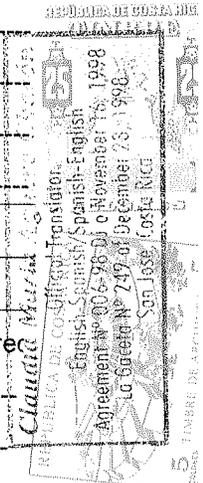 REPUBLICA DE COSTA RICA
25
25
Claudia María
Official Translator
English-Spanish/Spanish-English
Agreement Nº 006-98-DJ of November 16, 1998
La Gaceta Nº 249 of December 23, 1998
San José, Costa Rica
REPUBLICA DE COSTA
5 TIMBRE DE